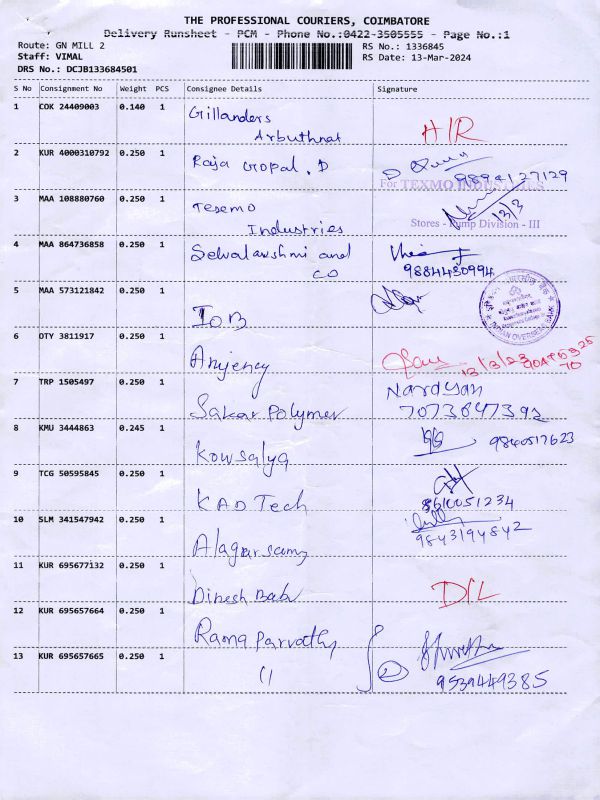 THE PROFESSIONAL COURIERS, COIMBATORE
Delivery Runsheet - PCM - Phone No.:0422-3505555 - Page No.:1
Route: GN MILL 2 RS No.: 1336845
Staff: VIMAL RS Date: 13-Mar-2024
DRS No.: DCJB133684501
S No Consignment No Weight PCS Consignee Details Signature
1 COK 24409003 0.140 1 Gillanders
Arbuthnat H/R
2 KUR 4000310792 0.250 1 Raja Gopal . D
9894127129
For TEXMO INDUSTRIES
3 MAA 108880760 0.250 1 Texmo
Industries 13/3
Stores - Pump Division - III
4 MAA 864736858 0.250 1 Selvalakshmi and
CO 9884430994
5 MAA 573121842 0.250 1 IOB
INDIAN OVERSEAS BANK
6 DTY 3811917 0.250 1 Anjency
13/3/23
7 TRP 1505497 0.250 1 Sakar Polymer Narayan
8 KMU 3444863 0.245 1 Kowsalya 9840517623
9 TCG 50595845 0.250 1 KAD Tech
8610051234
10 SLM 341547942 0.250 1 Alagarsamy
9843194842
11 KUR 695677132 0.250 1 Dinesh Babu D/L
12 KUR 695657664 0.250 1 Rama Parvathy
13 KUR 695657665 0.250 1 "
9539449385